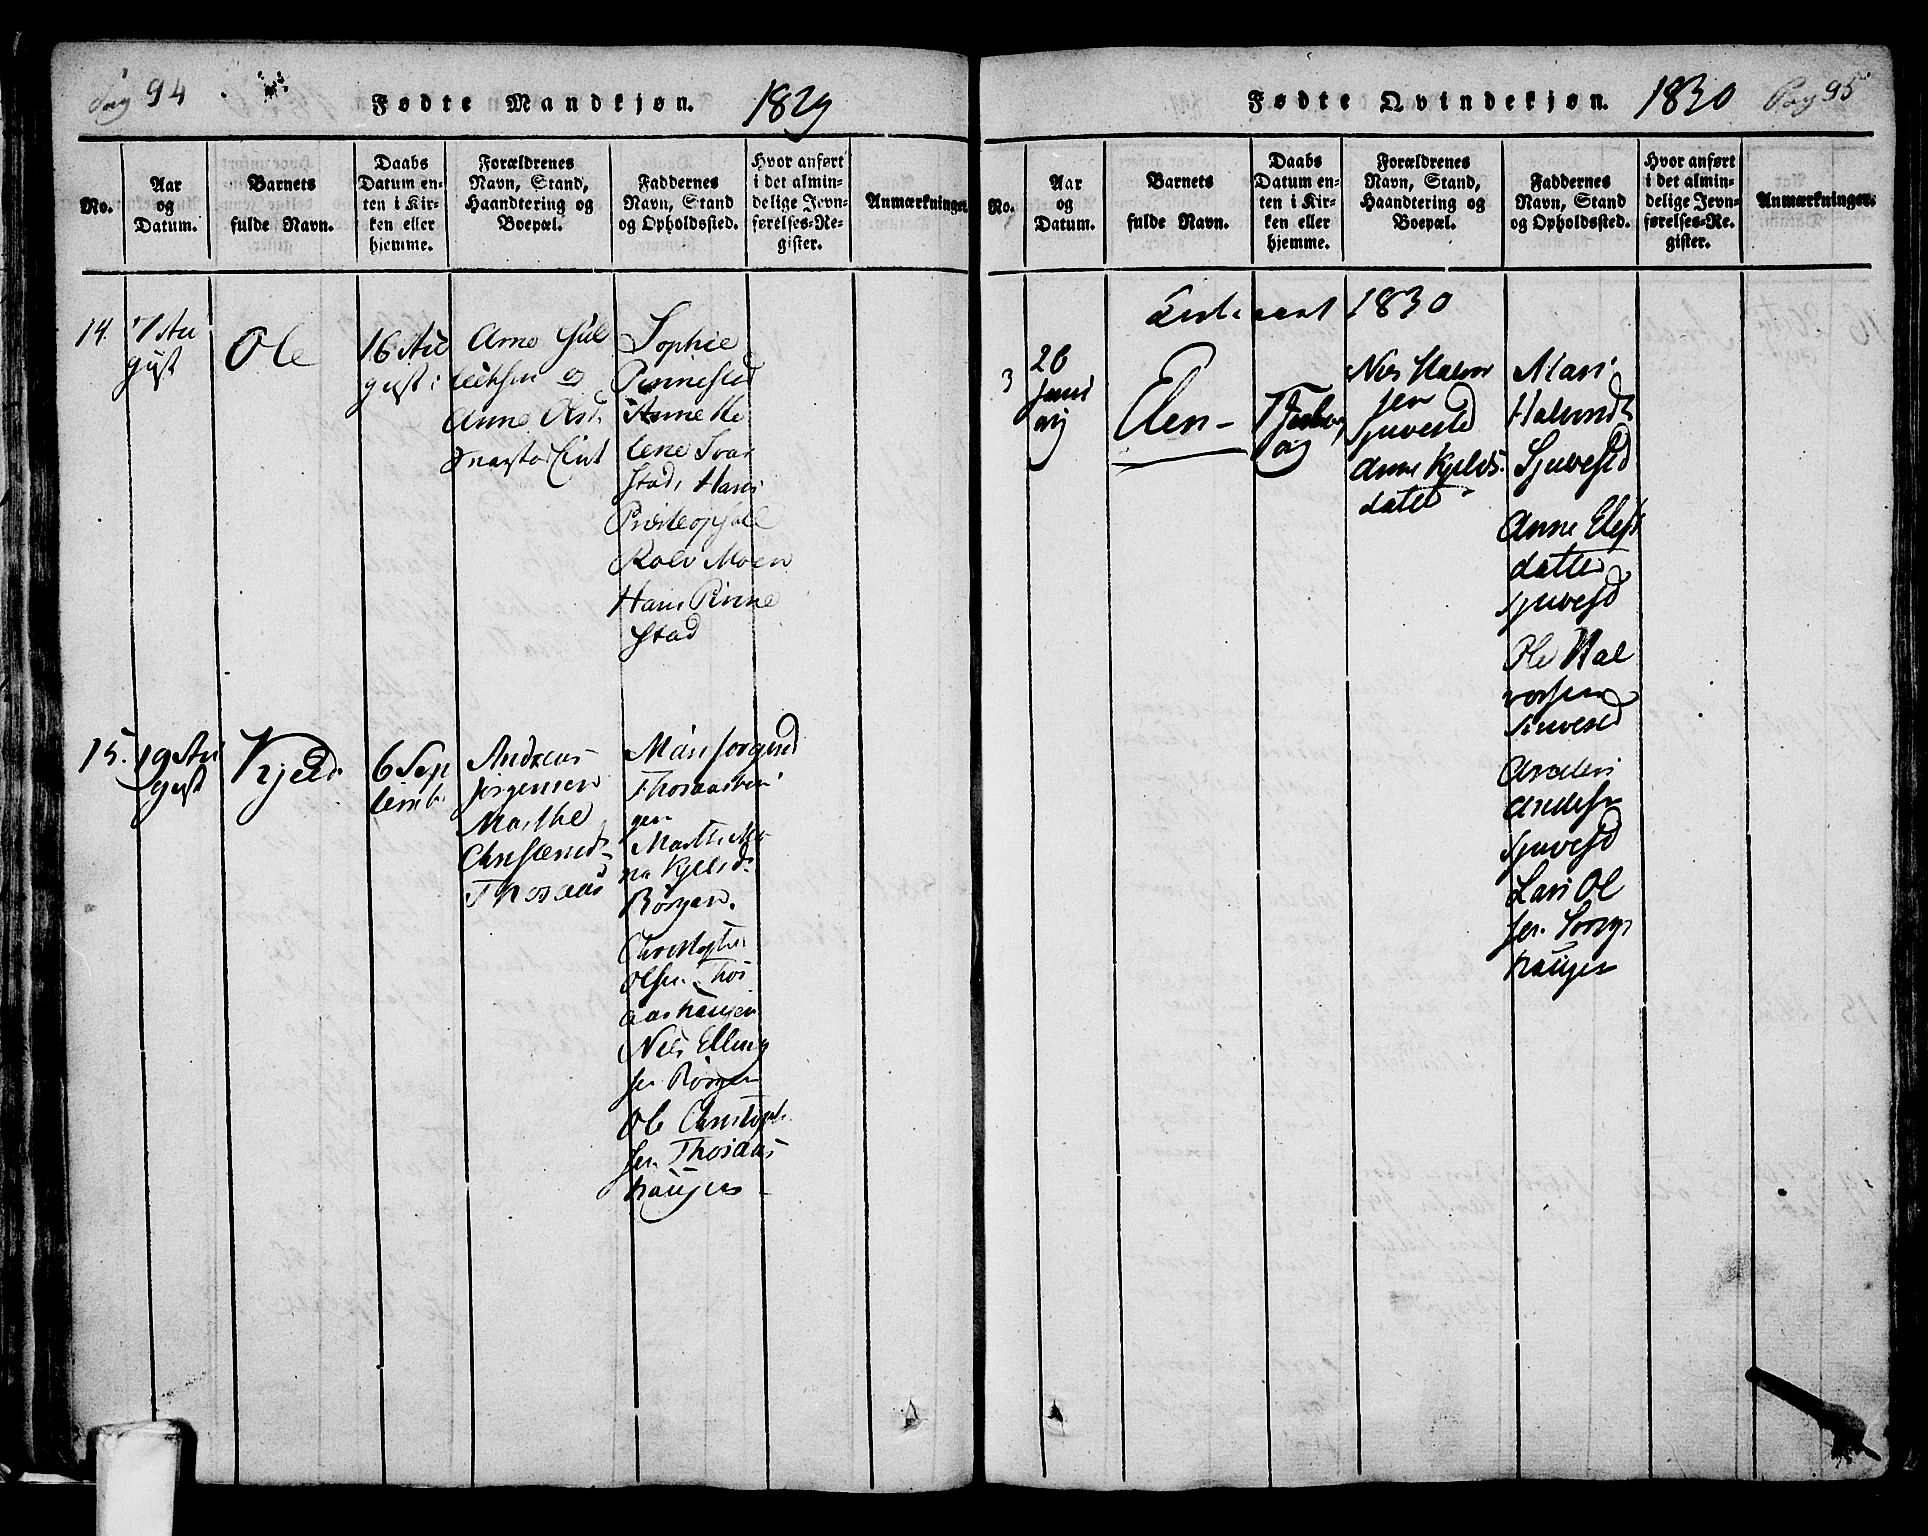 Pag 94
Fødte Mandkjøn. 1829
No.
Aar og Datum.
Barnets fulde Navn.
Daabs Datum enten i Kirken eller hjemme.
Forældrenes Navn, Stand, Haandtering og Boepæl.
Faddernes Navn, Stand og Opholdssted.
Hvor anført i det almindelige Jevnførelses-Register.
Anmærkninger.
14.
7 Au
gust
Ole
16 Au
gust
Arne Gul
leiksen og
Anne Olsd.
Sophie
Pinnested
Anne He
lene Svar
stad, Hans
Rolv Moen
Hans Pinne
stad
15.
19 Au
gust
Kjeld
6 Sep
temb
Andreas
Jørgensen
Marthe
Christensd
Thosaas
Mari Jørgensd
Marthe Ma
ria Kjeldsd
Rørgen.
Christopher
Olsen Thos
aashaugen
Niels Elling
sen Rørgen
Ole Christoph
sen Thosaas
haugen
Fødte Qvindekjøn. 1830 Pag 95
No.
Aar og Datum.
Barnets fulde Navn.
Daabs Datum enten i Kirken eller hjemme.
Forældrenes Navn, Stand, Haandtering og Boepæl.
Faddernes Navn, Stand og Opholdssted.
Hvor anført i det almindelige Jevnførelses-Register.
Anmærkninger.
Kirkeaaret 1830
3
26
Janu
arij
Elen
7 Febru
arij
Niels Halvor
sen
Sjuvestd
Anne Kjelds
datter
Mari
Halvorsdt
Sjuvestd
Anne Elefs
datter
Sjuvestd
Ole Hal
vorsen
Sjuvestd
Anders
Andersen
Sjuvestd
Lars Ol
sen
haugen